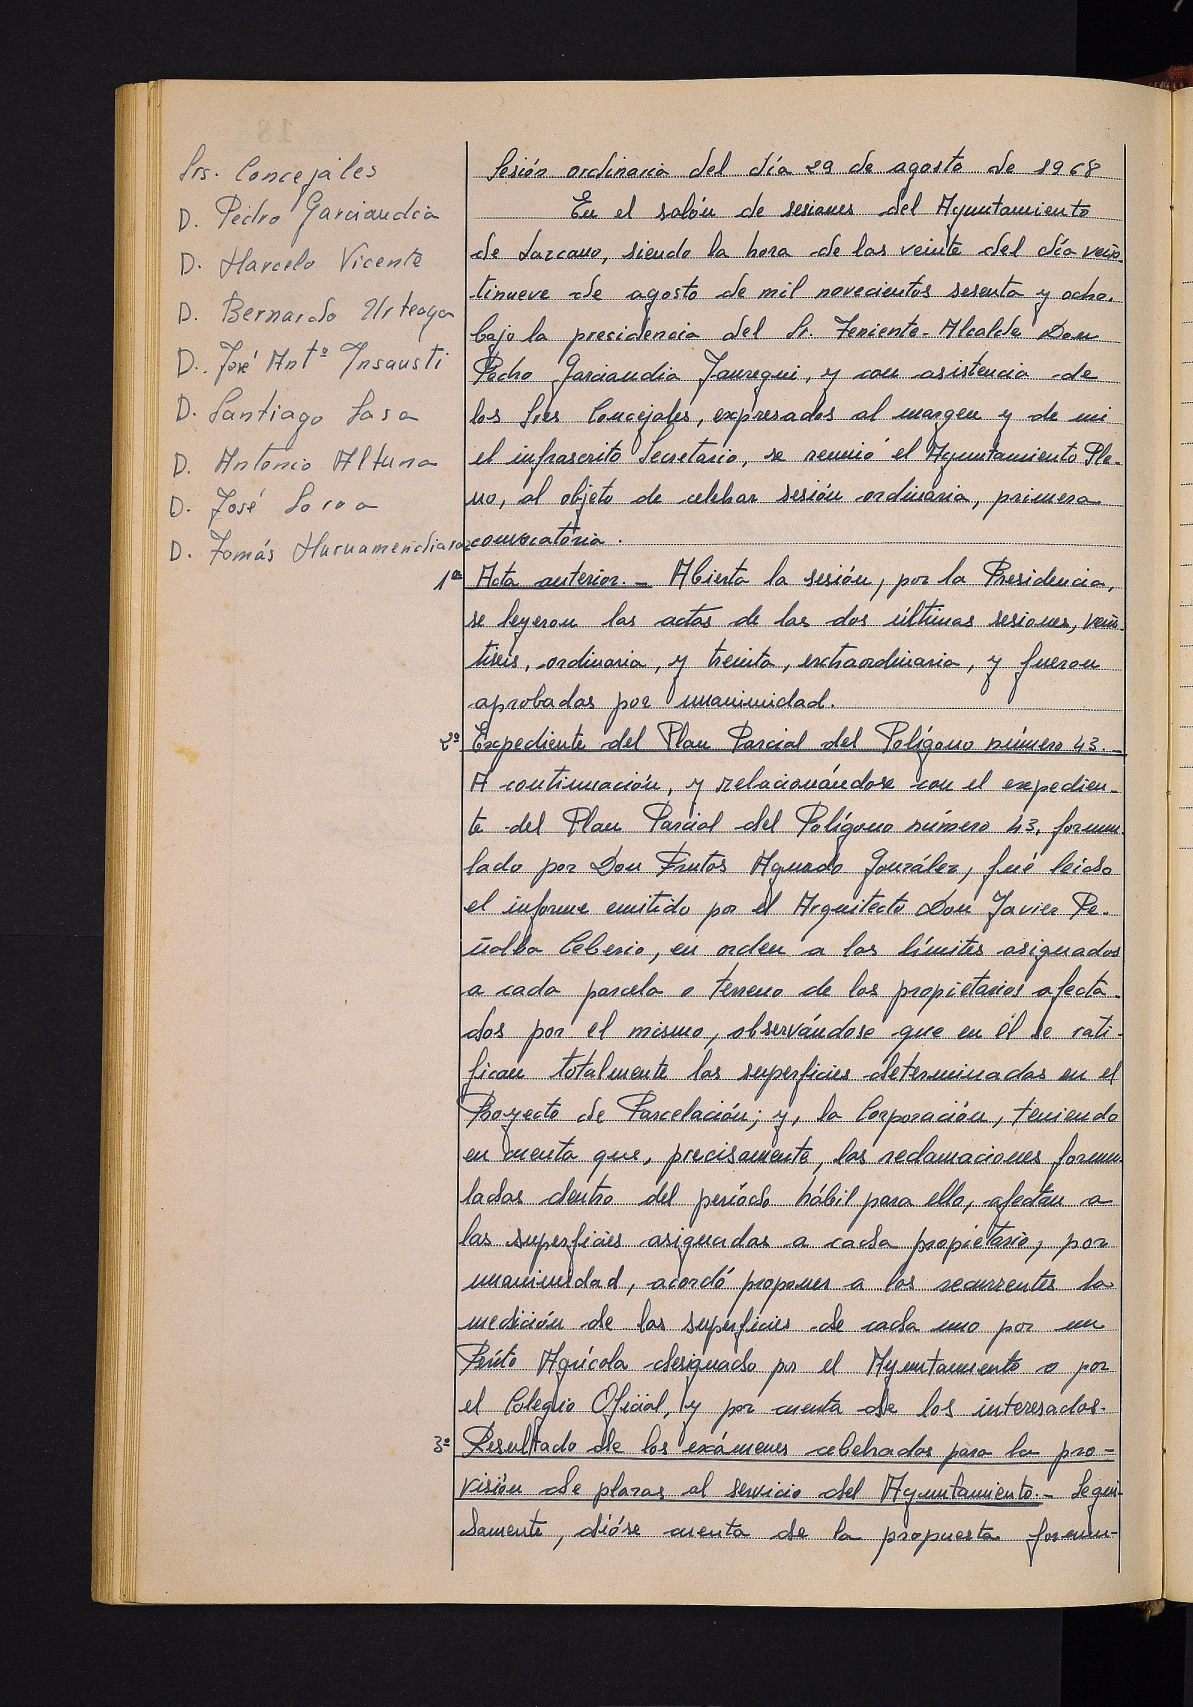 Srs. Concejales
D. Pedro Garciandia
D. Marcelo Vicente
D. Bernardo Urteaga
D. José Antº Insausti
D. Santiago Sasa
D. Antonio Altuna
D. José Soroa
D. Tomás Muruamendiaraz
Sesión ordinaria del día 29 de agosto de 1968
En el salón de sesiones del Ayuntamiento
de Lazcano, siendo la hora de las veinte del día vein-
tinueve de agosto de mil novecientos sesenta y ocho,
bajo la presidencia del Sr. Teniente-Alcalde Don
Pedro Garciandia Jauregui, y con asistencia de
los Sres Concejales, expresados al margen y de mi
el infrascrito Secretario, se reunió el Ayuntamiento Ple-
no, al objeto de celebrar sesión ordinaria, primera
convocatoria.
1ª Acta anterior.- Abierta la sesión, por la Presidencia,
se leyeron las actas de las dos últimas sesiones, vein-
tiseis, ordinaria, y treinta, extraordinaria, y fueron
aprobadas por unanimidad.
2º Expediente del Plan Parcial del Polígono número 43.-
A continuación, y relacionándose con el expedien-
te del Plan Parcial del Polígono número 43, formu-
lado por Don Frutos Aguado González, fué leido
el informe emitido por el Arquitecto Don Javier Pe-
ñalba Ceberio, en orden a los límites asignados
a cada parcela o terreno de los propietarios afecta-
dos por el mismo, observándose que en él se rati-
fican totalmente las superficies determinadas en el
Proyecto de Parcelación; y, la Corporación, teniendo
en cuenta que, precisamente, las reclamaciones formu-
ladas dentro del período hábil para ello, afectan a
las superficies asignadas a cada propietario, por
unanimidad, acordó proponer a los recurrentes la
medición de las superficies de cada uno por un
Perito Agrícola designado por el Ayuntamiento o por
el Colegio Oficial, y por cuenta de los interesados.
3º Resultado de los exámenes celebrados para la pro-
visión de plazas al servicio del Ayuntamiento.- Segui-
damente, dióse cuenta de la propuesta formu-